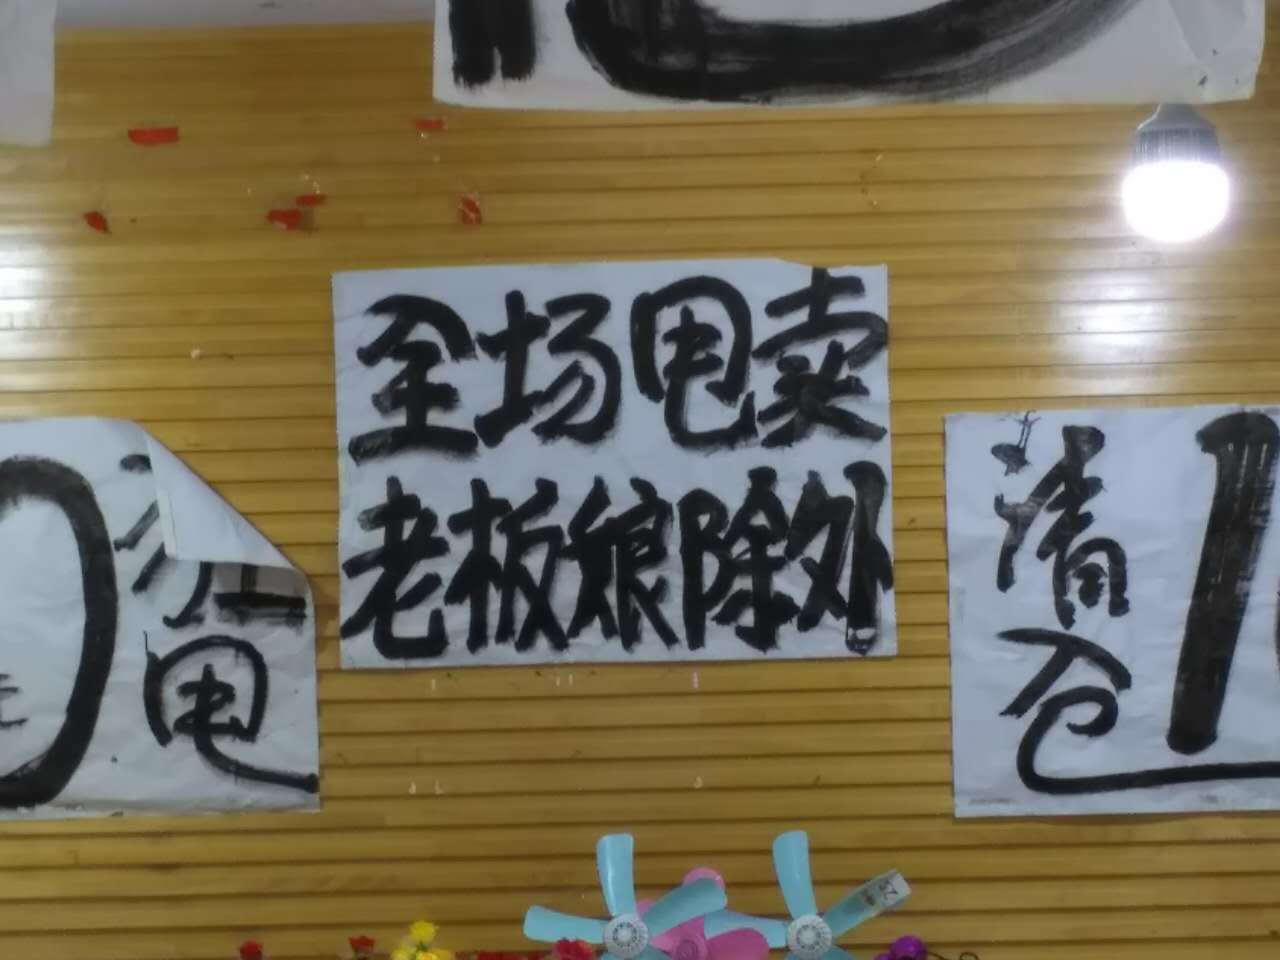 全场甩卖
老板娘除外
狂
甩
清
仓